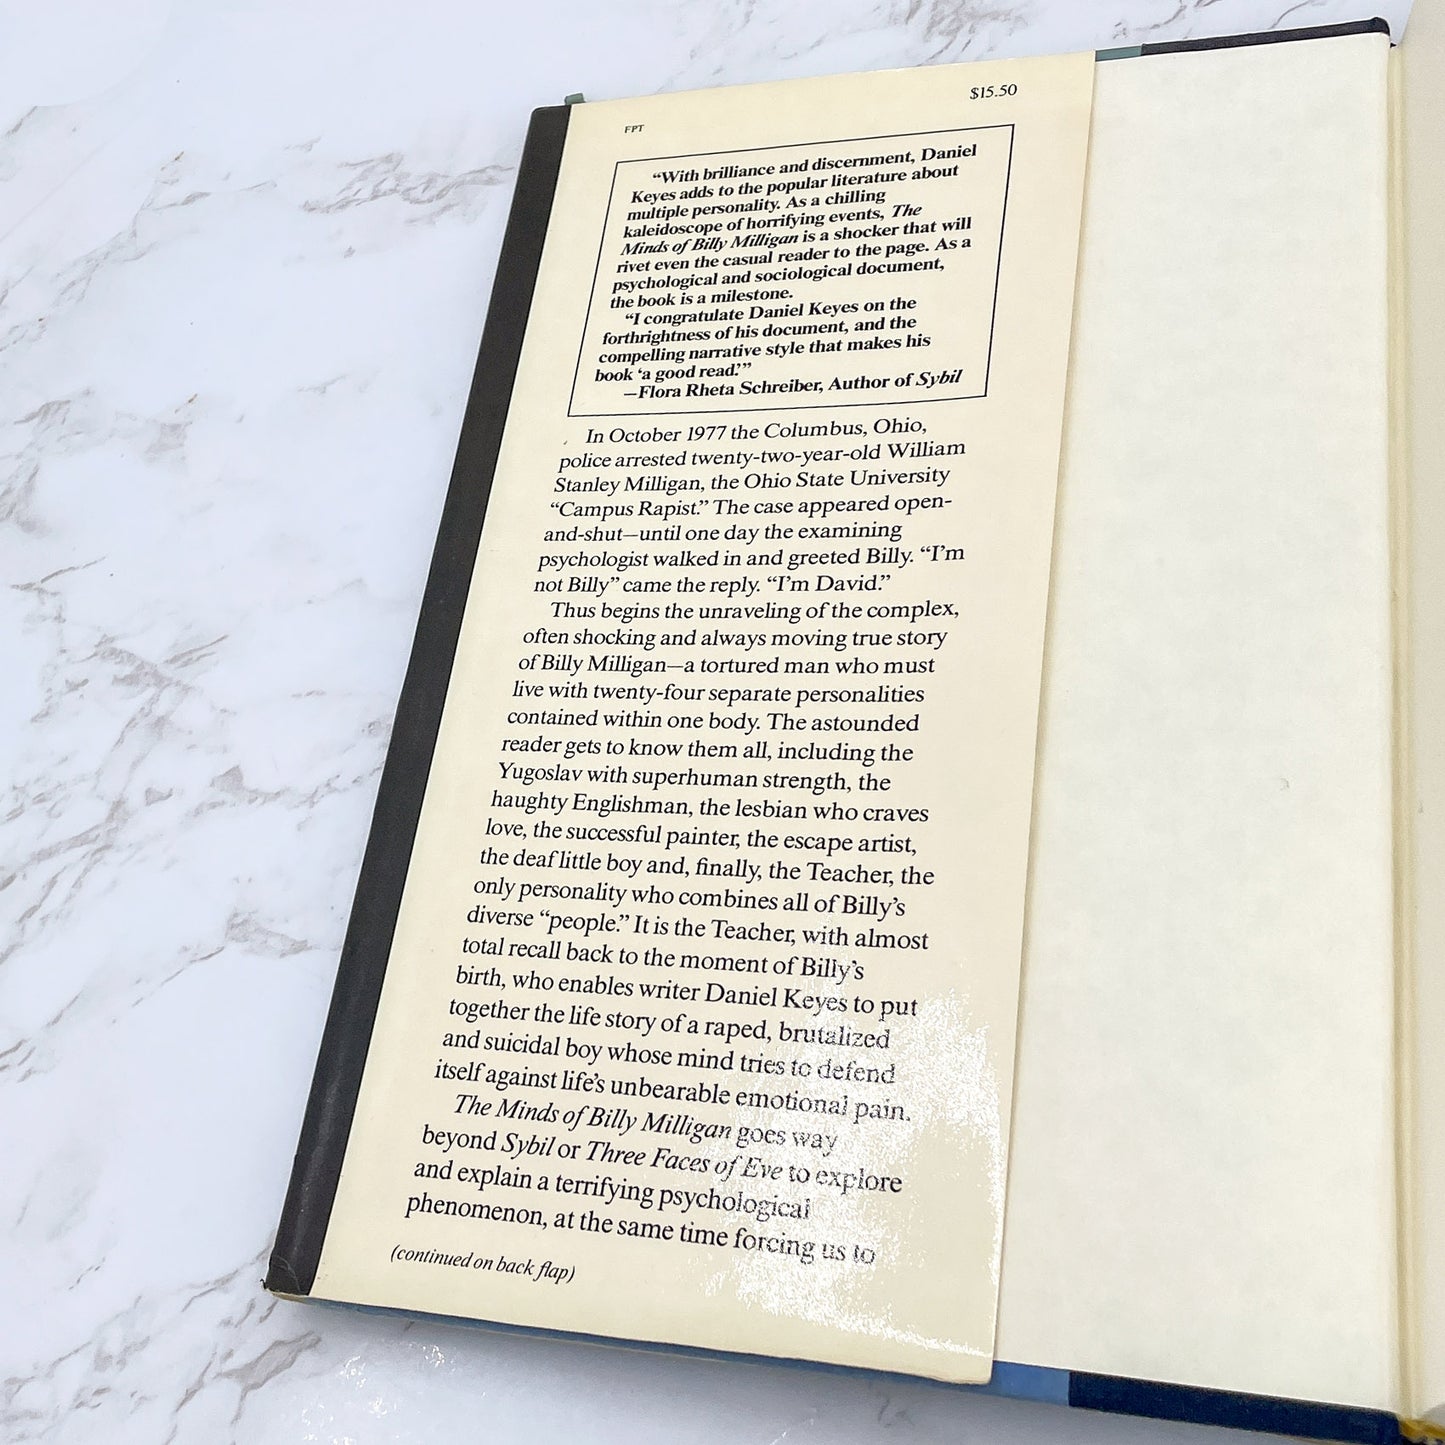 $15.50
FPT
“With brilliance and discernment, Daniel
Keyes adds to the popular literature about
multiple personality. As a chilling
kaleidoscope of horrifying events, The
Minds of Billy Milligan is a shocker that will
rivet even the casual reader to the page. As a
psychological and sociological document,
the book is a milestone.
“I congratulate Daniel Keyes on the
forthrightness of his document, and the
compelling narrative style that makes his
book ‘a good read.’”
—Flora Rheta Schreiber, Author of Sybil
In October 1977 the Columbus, Ohio,
police arrested twenty-two-year-old William
Stanley Milligan, the Ohio State University
“Campus Rapist.” The case appeared open-
and-shut—until one day the examining
psychologist walked in and greeted Billy. “I’m
not Billy” came the reply. “I’m David.”
Thus begins the unraveling of the complex,
often shocking and always moving true story
of Billy Milligan—a tortured man who must
live with twenty-four separate personalities
contained within one body. The astounded
reader gets to know them all, including the
Yugoslav with superhuman strength, the
haughty Englishman, the lesbian who craves
love, the successful painter, the escape artist,
the deaf little boy and, finally, the Teacher, the
only personality who combines all of Billy’s
diverse “people.” It is the Teacher, with almost
total recall back to the moment of Billy’s
birth, who enables writer Daniel Keyes to put
together the life story of a raped, brutalized
and suicidal boy whose mind tries to defend
itself against life’s unbearable emotional pain.
The Minds of Billy Milligan goes way
beyond Sybil or Three Faces of Eve to explore
and explain a terrifying psychological
phenomenon, at the same time forcing us to
(continued on back flap)